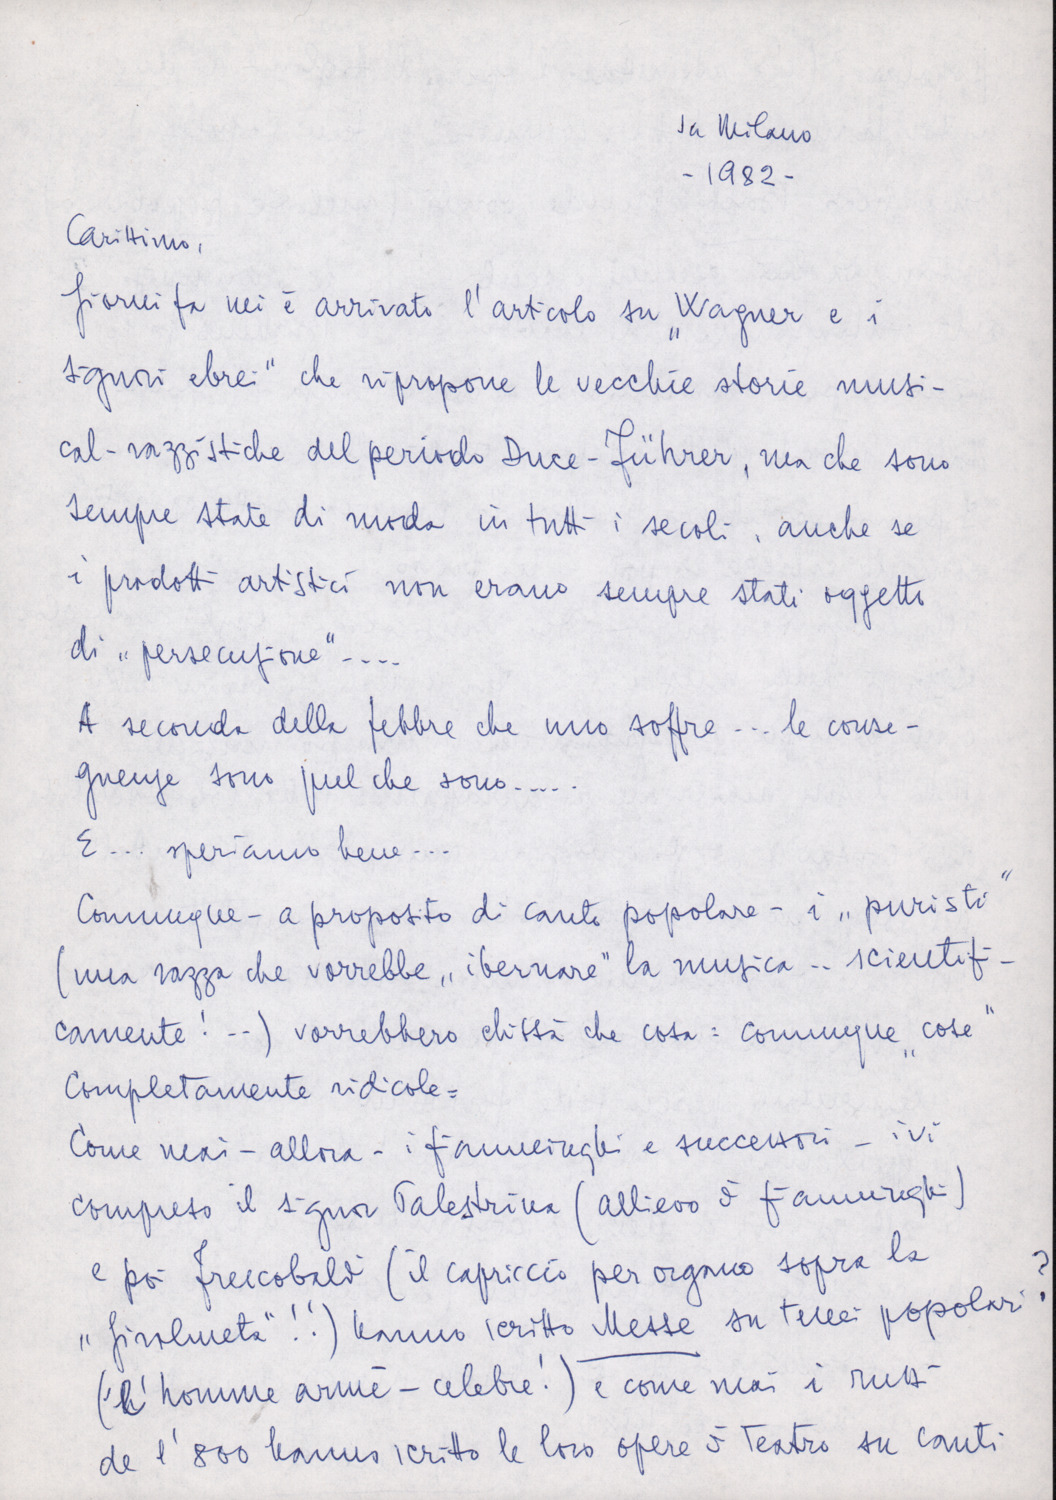 da Milano
- 1982 -
Carissimo,
Giorni fa mi è arrivato l'articolo su „Wagner e i
signori ebrei" che ripropone le vecchie storie musi-
cal-razzistiche del periodo Duce-Führer, ma che sono
sempre state di moda in tutti i secoli, anche se
i prodotti artistici non erano sempre stati oggetto
di „persecuzione"----
A seconda della febbre che uno soffre --- le conse-
guenze sono quel che sono.....
E --- speriamo bene ---
Comunque - a proposito di canto popolare - i „puristi"
(una razza che vorrebbe „ibernare" la musica -- scientifi-
camente! --) vorrebbero chissà che cosa: comunque „cose"
completamente ridicole=
Come mai - allora - i fiamminghi e successori - ivi
compreso il signor Palestrina (allievo di fiamminghi)
e poi Frescobaldi (il capriccio per organo sopra la
„Girolmeta"!!) hanno scritto Messe su temi popolari?
(l'homme armé - celebre!) e come mai i russi
de l'800 hanno scritto le loro opere di Teatro su canti